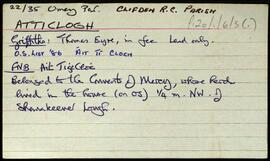 22/35 Omey Par. CLIFDEN R.C. PARISH
P.20/1/6/3(.)
ATTICLOGH
Griffiths: Thomas Eyre, in fee Land only.
O.S. LIST '86 Ait Tí Cloch
FNB Ait
Belonged to the Convent of Mercy, whose Herd
lived in the house (on OS) ¼ m. NW. of
Shannkeever Lough.